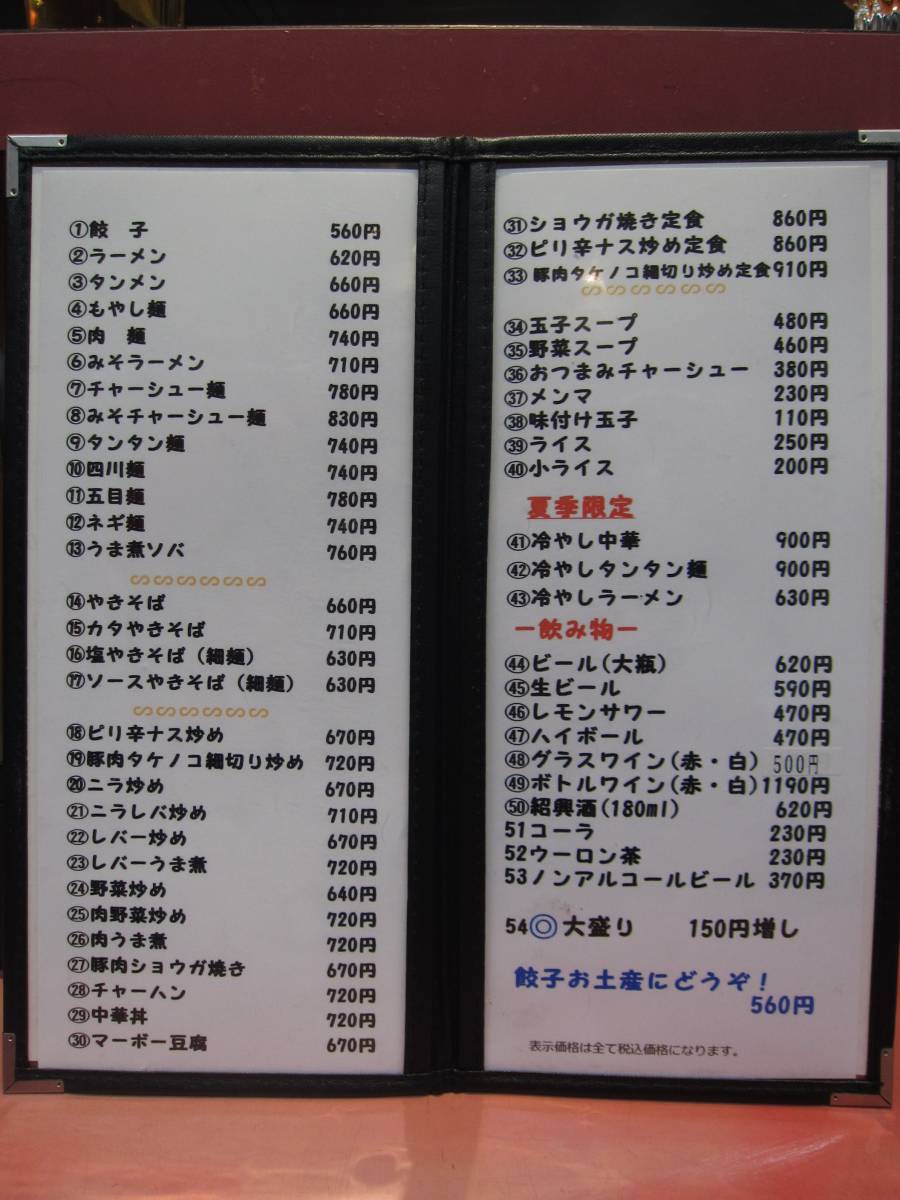 ①餃 子 560円
②ラーメン 620円
③タンメン 660円
④もやし麺 660円
⑤肉 麺 740円
⑥みそラーメン 710円
⑦チャーシュー麺 780円
⑧みそチャーシュー麺 830円
⑨タンタン麺 740円
⑩四川麺 740円
⑪五目麺 780円
⑫ネギ麺 740円
⑬うま煮ソバ 760円
⑭やきそば 660円
⑮カタやきそば 710円
⑯塩やきそば(細麺) 630円
⑰ソースやきそば(細麺) 630円
⑱ピリ辛ナス炒め 670円
⑲豚肉タケノコ細切り炒め 720円
⑳ニラ炒め 670円
㉑ニラレバ炒め 710円
㉒レバー炒め 670円
㉓レバーうま煮 720円
㉔野菜炒め 640円
㉕肉野菜炒め 720円
㉖肉うま煮 720円
㉗豚肉ショウガ焼き 670円
㉘チャーハン 720円
㉙中華丼 720円
㉚マーボー豆腐 670円
㉛ショウガ焼き定食 860円
㉜ピリ辛ナス炒め定食 860円
㉝豚肉タケノコ細切り炒め定食 910円
㉞玉子スープ 480円
㉟野菜スープ 460円
㊱おつまみチャーシュー 380円
㊲メンマ 230円
㊳味付け玉子 110円
㊴ライス 250円
㊵小ライス 200円
夏季限定
㊶冷やし中華 900円
㊷冷やしタンタン麺 900円
㊸冷やしラーメン 630円
ー飲み物ー
㊹ビール(大瓶) 620円
㊺生ビール 590円
㊻レモンサワー 470円
㊼ハイボール 470円
㊽グラスワイン(赤・白) 500円
㊾ボトルワイン(赤・白) 1190円
㊿紹興酒(180ml) 620円
51コーラ 230円
52ウーロン茶 230円
53ノンアルコールビール 370円
54◎大盛り 150円増し
餃子お土産にどうぞ!
560円
表示価格は全て税込価格になります。